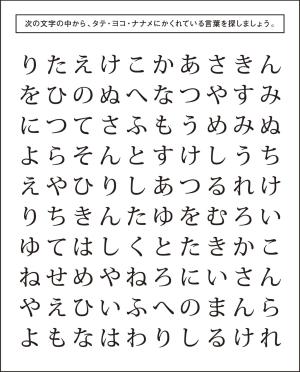 次の文字の中から、タテ・ヨコ・ナナメにかくれている言葉を探しましょう。
りたえけこかあさきん
をひのぬへなつやすみ
につてさふもうめみぬ
よらそんとすけしうち
えやひりしあつるれけ
りちきんたゆをむろい
ゆてはしくとたきかこ
ねせめやねろにいさん
やえひいふへのまんら
よもなはわりしるけれ